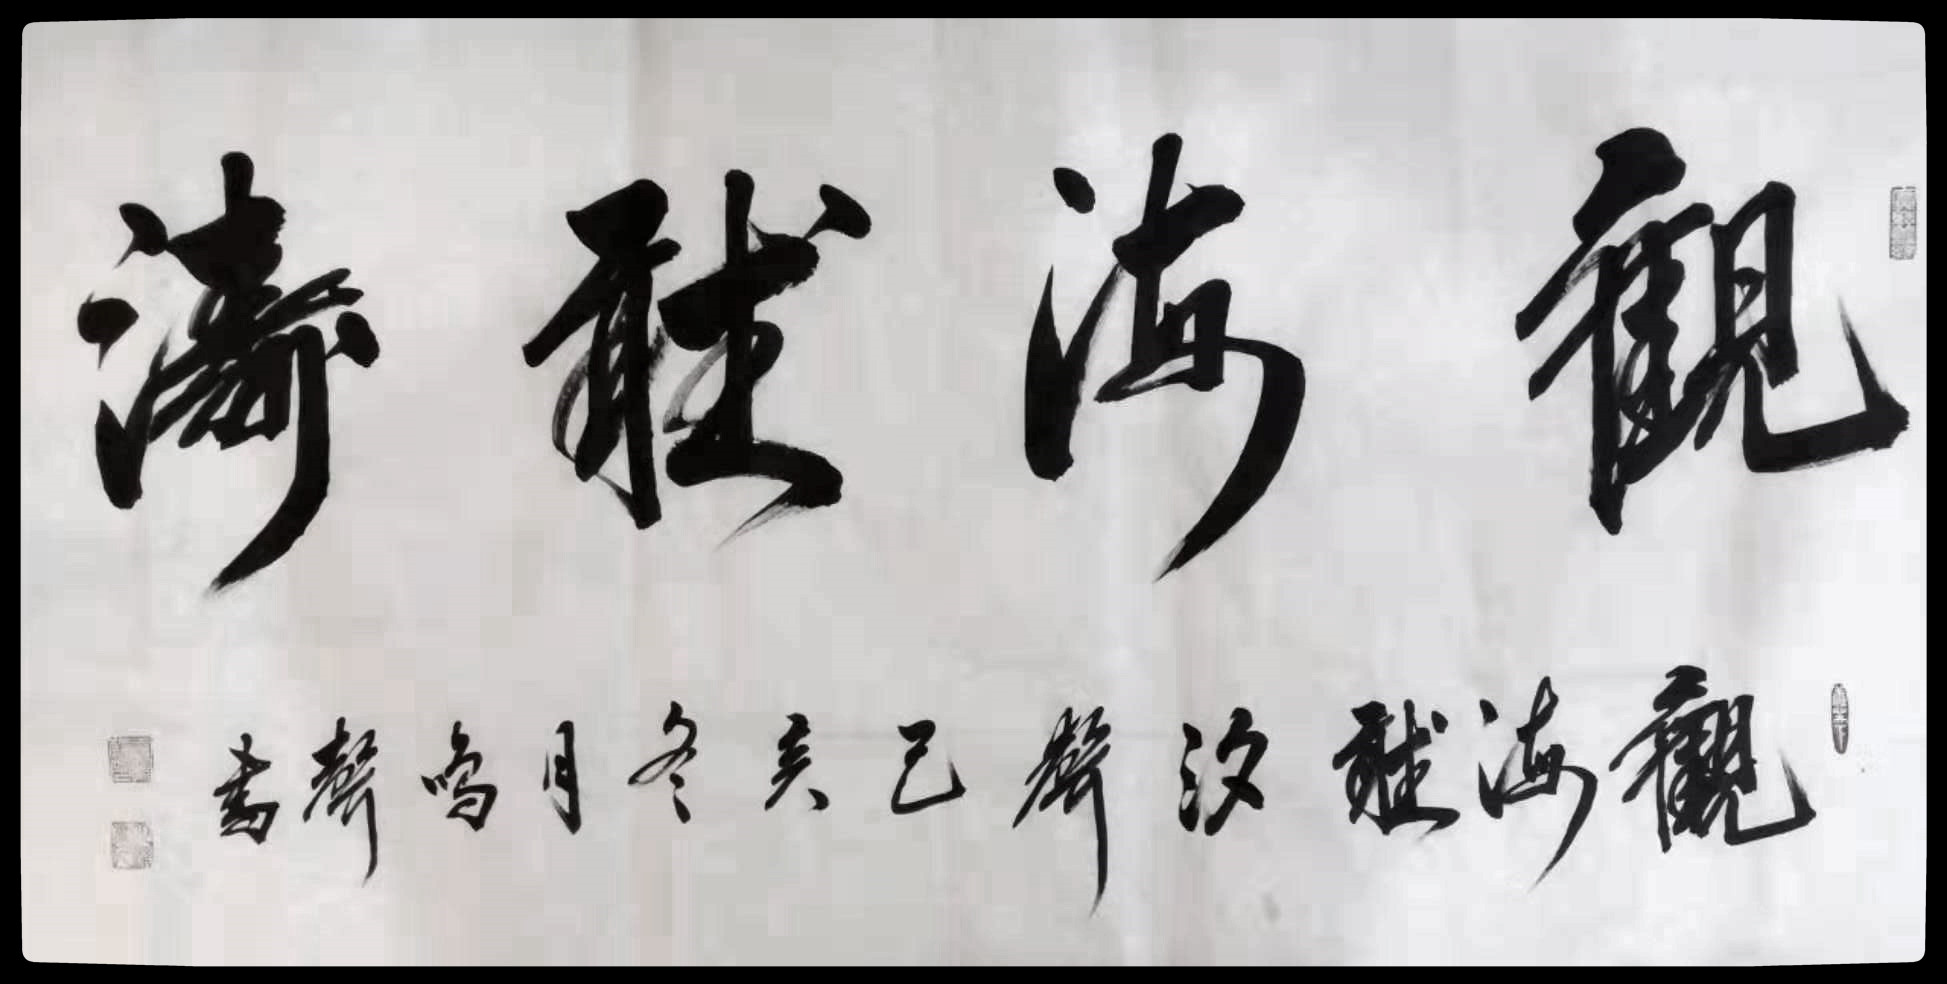 觀海聽濤
觀海聽汐聲己亥冬月鳴聲書